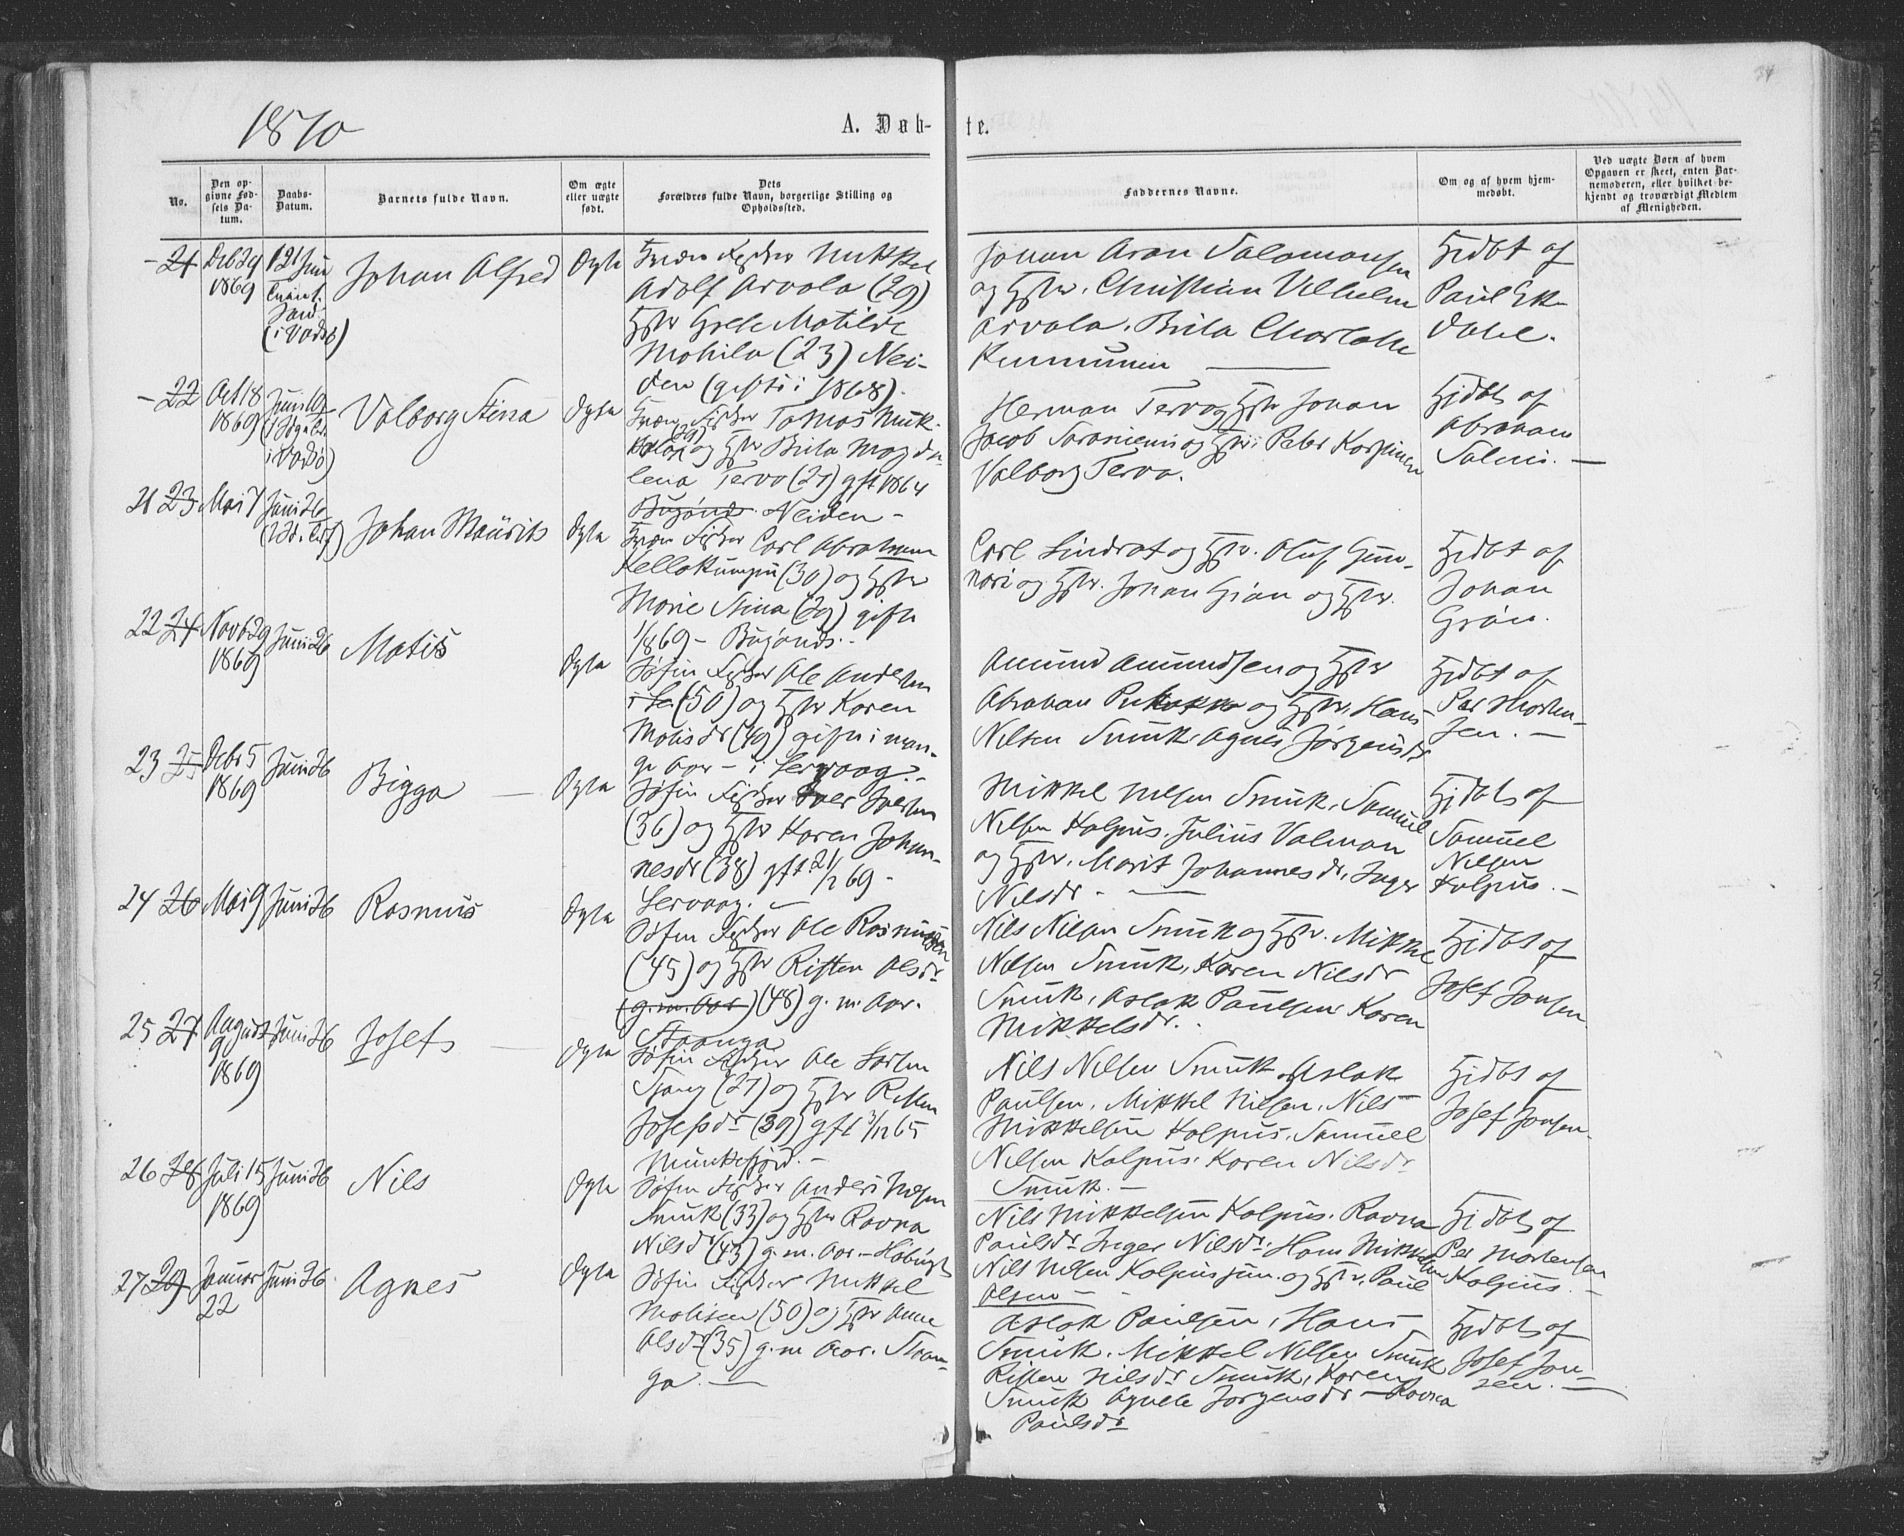 1870
A. Døb-
te.
34
No.
Den op-
givne Fød-
sels Da-
tum.
Daabs-
Datum.
Barnets fulde Navn.
Om ægte
eller uægte
født.
Dets
Forældres fulde Navn, borgerlige Stilling og
Opholdssted.
Faddernes Navne.
Om og af hvem hjem-
medøbt.
Ved uægte Børn af hvem
Opgaven er skeet, enten Bar-
nemoderen, eller hvilket be-
kjendt og troværdigt Medlem
af Menigheden.
- 21
Debr 29
1869
12 Juni
(i Vadsø)
Johan Alfred
Ægte
Kvæn Fisker Mikkel
Adolf Arvola (29)
Hstr Grete Matilde
Mohila (23) Nei-
den (gifte i 1868).
Johan Aron Salomonsen
og Hstr. Christian Vilhelm
Arvola. Brita Charlotte
Kummunien
Hjdbt af
Paul Ek
Dahl.
- 22
Oct 18
1869
Juni 19
i Vadsø)
Valborg Stina
Ægte
Kvæn Fisker Tomas Mik-
(29) og Hstr Brita Magda-
lena Tervo (27) gft 1864
Bugønæ. Neiden -
Herman Tervo og Hstr Johan
Jacob Saraniemi og Hstr. Peter Korpinen
Valborg Tervo.
Hjdbt af
Abraham
Salmi. -
21 23
Mai 7
Juni 26
Johan Maurits
Ægte
Kvæn Fisker Carl Abraham
Kellokumpu (30) og Hstr
Marie Stina (29) gifte
1/1 69 - Bugønæs. -
Carl Lindrot og Hstr. Oluf Gun-
nari og Hstr. Johan Grön og Hstr.
Hjdbt af
Johan
Grön.
22 24
Novb 29
1869
Juni 26
Matis
Ægte
Søfin Fisker Ole Andersen
(50) og Hstr Karen
Matisdr (49) gifte i man-
ge Aar - i Servaag. -
Amund Amundsen og Hstr
Abraham og Hstr. Hans
Nilsen Smuk. Agnes Jørgensdr
Hjdbt af
Per Morten-
sen. -
23 25
Debr 5
1869
Juni 26
Bigga
Ægte
Søfin Fisker Iver Iversen
(36) og Hstr Karen Johan-
nesdr (38) gft 21/1 69 -
Servaag. -
Mikkel Nilsen Smuk. Samuel
Nilsen Kalpus. Julius Valman
og Hstr. Marit Johannesdr, Inger
Nilsdr. -
Hjdbt af
Samuel
Nilsen
Kalpus. -
24 26
Mai 9
Juni 26
Rasmus
Ægte
Søfin Fisker Ole Rasmussen
(45) og Hstr Risten Olsdr
(g. m. Aar) (48) g. m. Aar.
Straanga
Nils Nilsen Smuk og Hstr. Mikkel
Nilsen Smuk, Karen Nilsdr
Smuk, Aslak Paulsen, Karen
Mikkelsdr.
Hjdbt af
Josef Jonsen
25 27
August
9
1869
Juni 26
Josef
Ægte
Søfin Fisker Ole Larsen
(27) og Hstr Risten
Josefsdr (39) gft 3/12 65
Munkefjord. -
Nils Nilsen Smuk. Aslak
Paulsen. Mikkel Nilsen. Nils
Mikkelsen Kalpus. Samuel
Nilsen Kalpus. Karen Nilsdr
Smuk. -
Hjdbt af
Josef Jonsen.
26 28
Juli 15
1869
Juni 26
Nils
Ægte
Søfin Fisker Anders Nilsen
Smuk (33) og Hstr Ravna
Nilsdr (43) g. m. Aar - Høbugt
Nils Mikkelsen Kalpus. Ravna
Paulsdr Inger Nilsdr. Hans Mikkelsen
Nils Nilsen Kalpus jun. og Hstr. Paul
Olsen -
Hjdbt af
Per Mortensen
Kalpus. -
27 29
Januar
22
Juni 26
Agnes
Ægte
Søfin Fisker Mikkel
Matisen (50) og Hstr Anne
Olsdr (35) g. m. Aar. Straan-
ga. -
Aslak Paulsen, Hans
Smuk. Mikkel Nilsen Smuk
Risten Nilsdr Smuk, Karen
Smuk Agnete Jørgensdr - Ravna
Paulsdr
Hjdbt af
Josef Jon-
sen. -